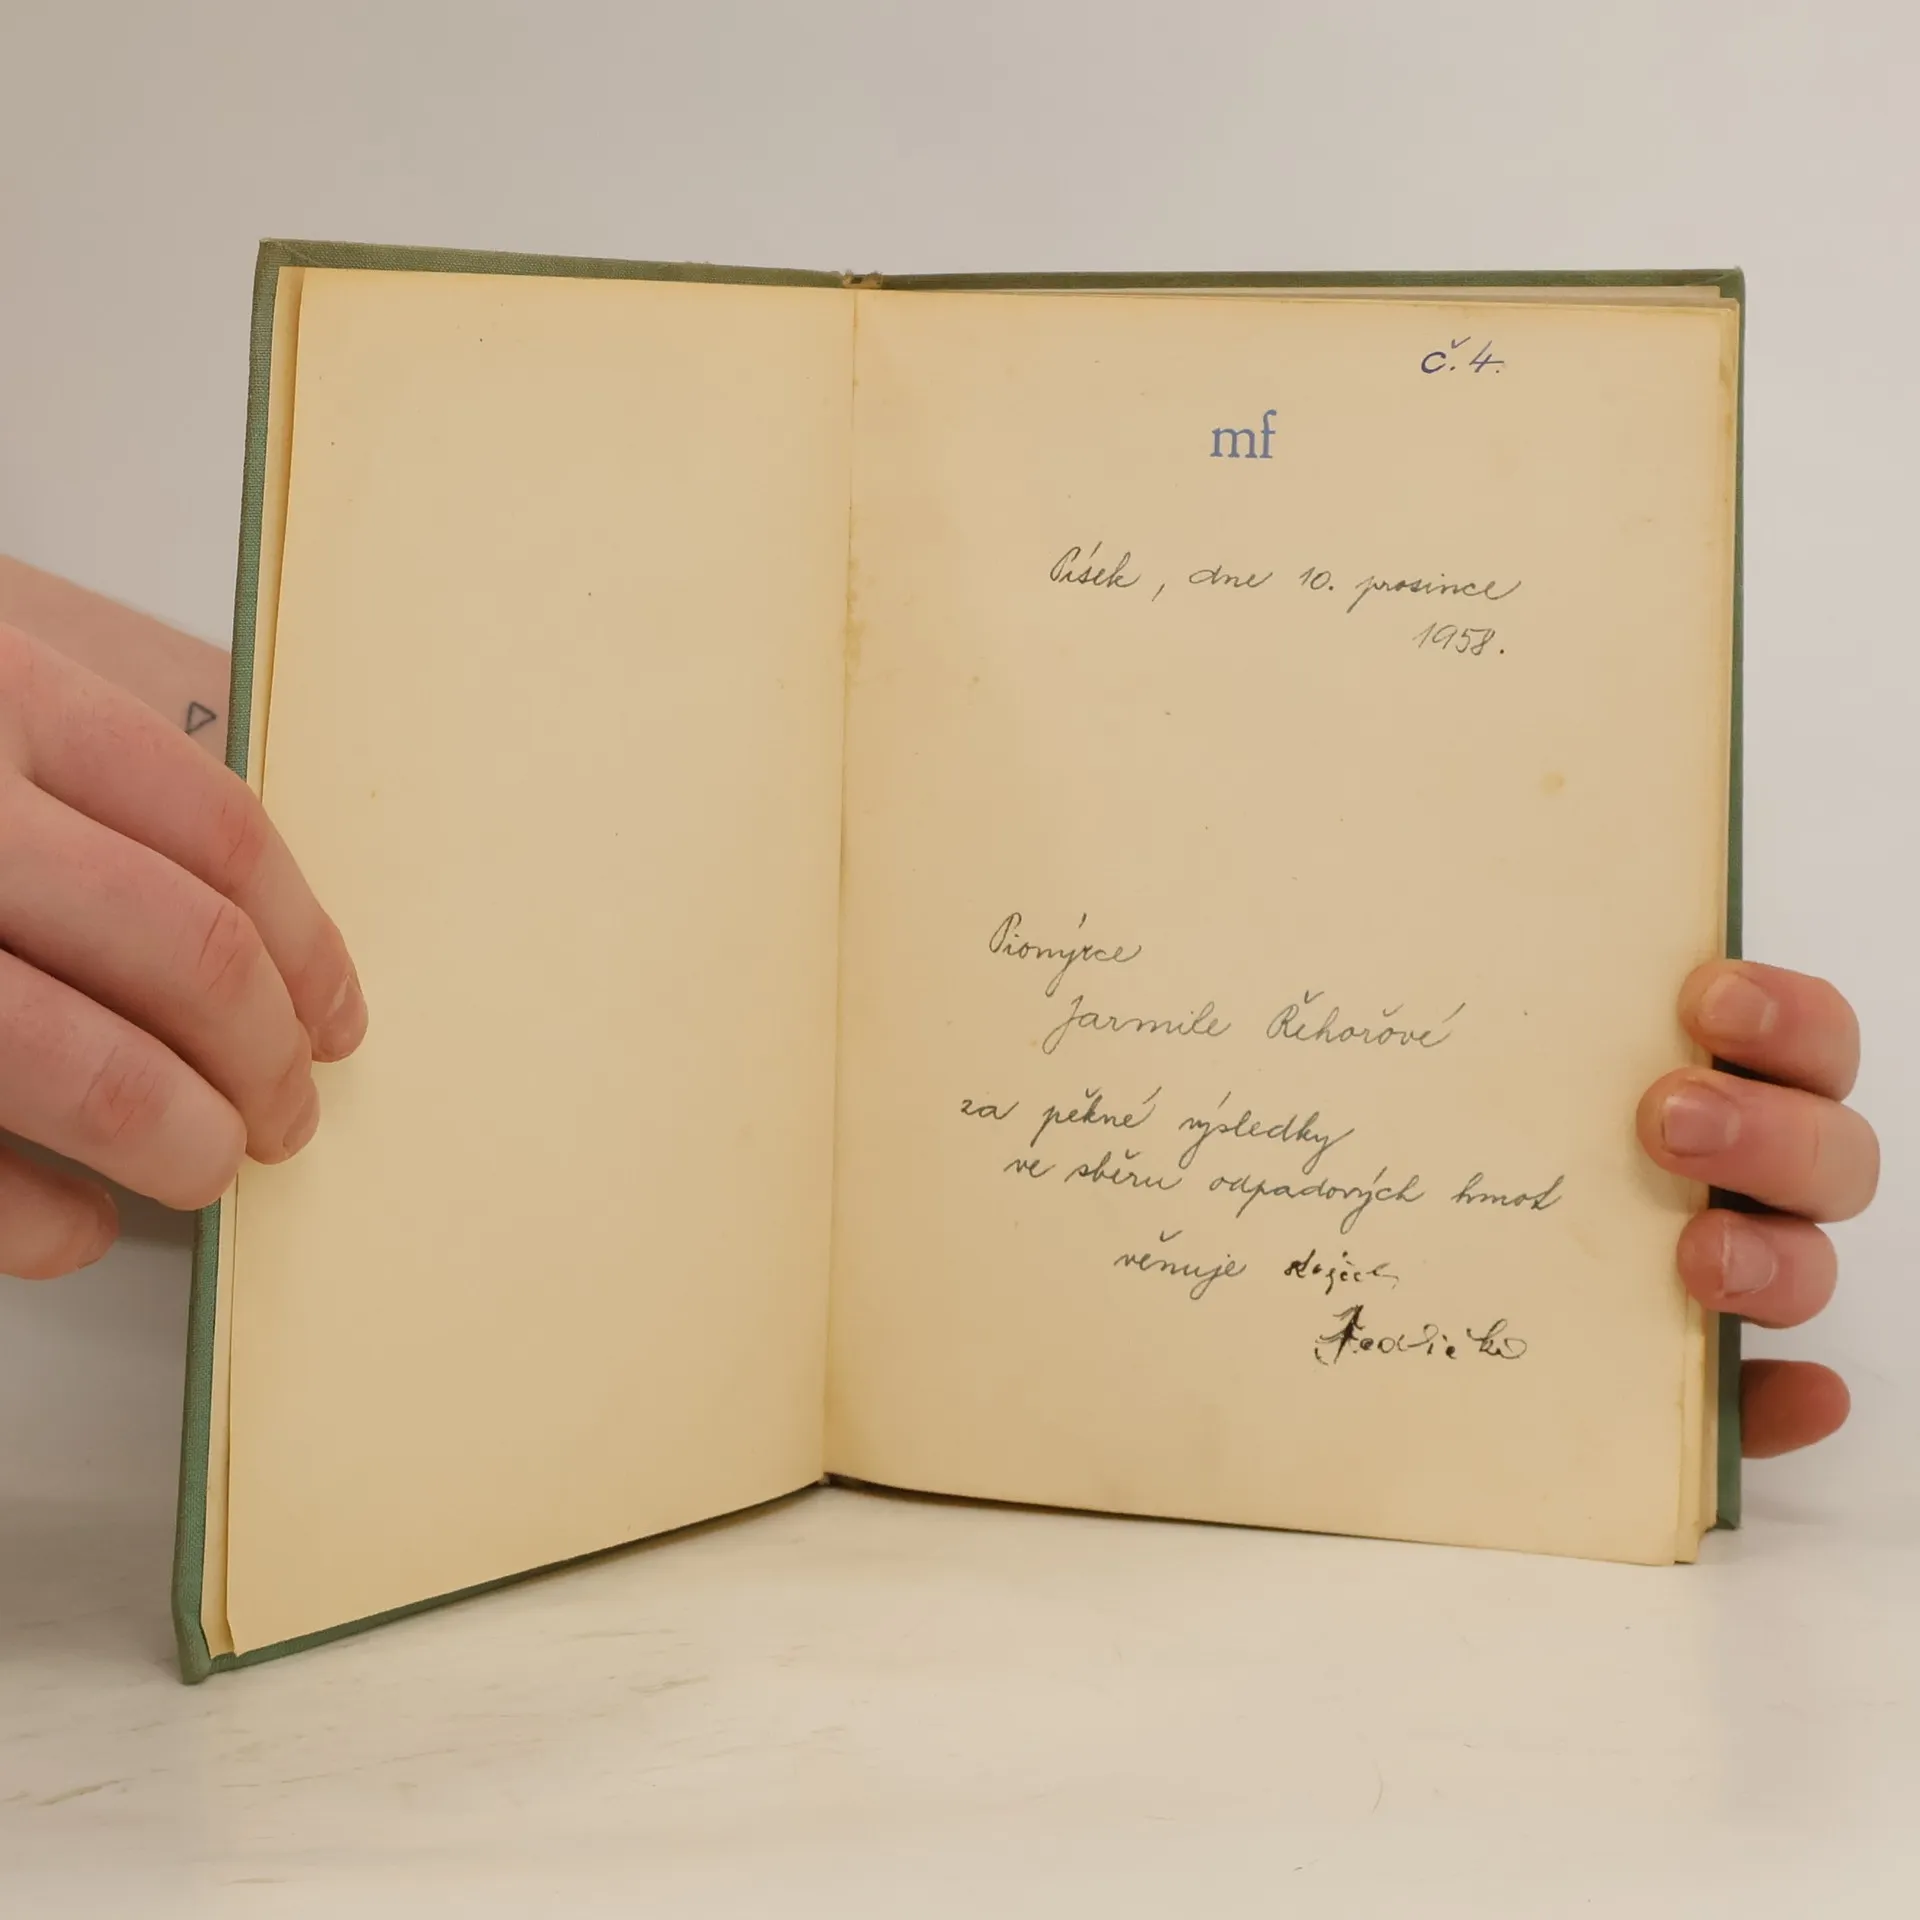 č. 4.
mf
Písek, dne 10. prosince
1958.
Pionýrce
Jarmile Řehořové
za pěkné výsledky
ve sběru odpadových hmot
věnuje